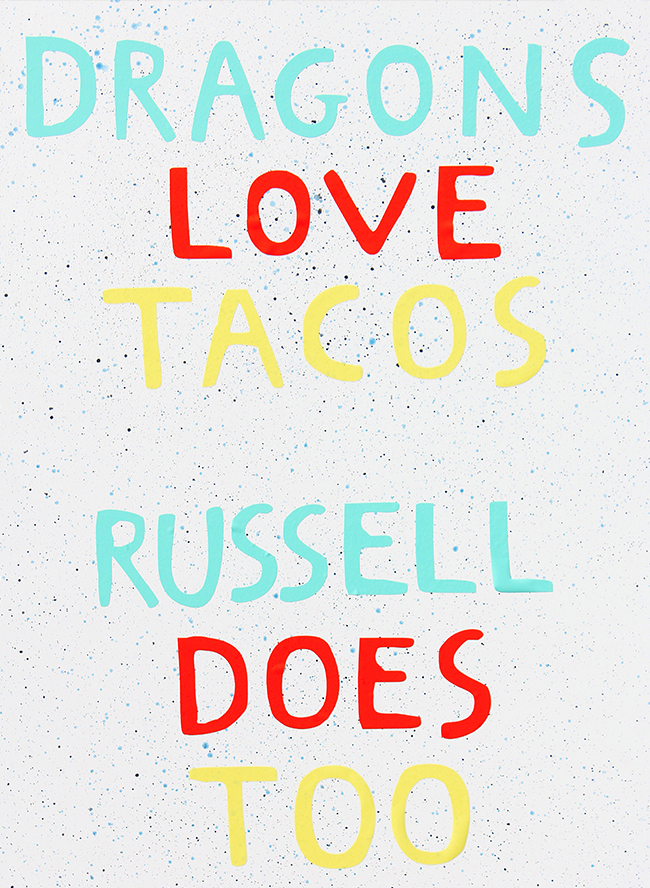 DRAGONS
LOVE
TACOS
RUSSELL
DOES
TOO